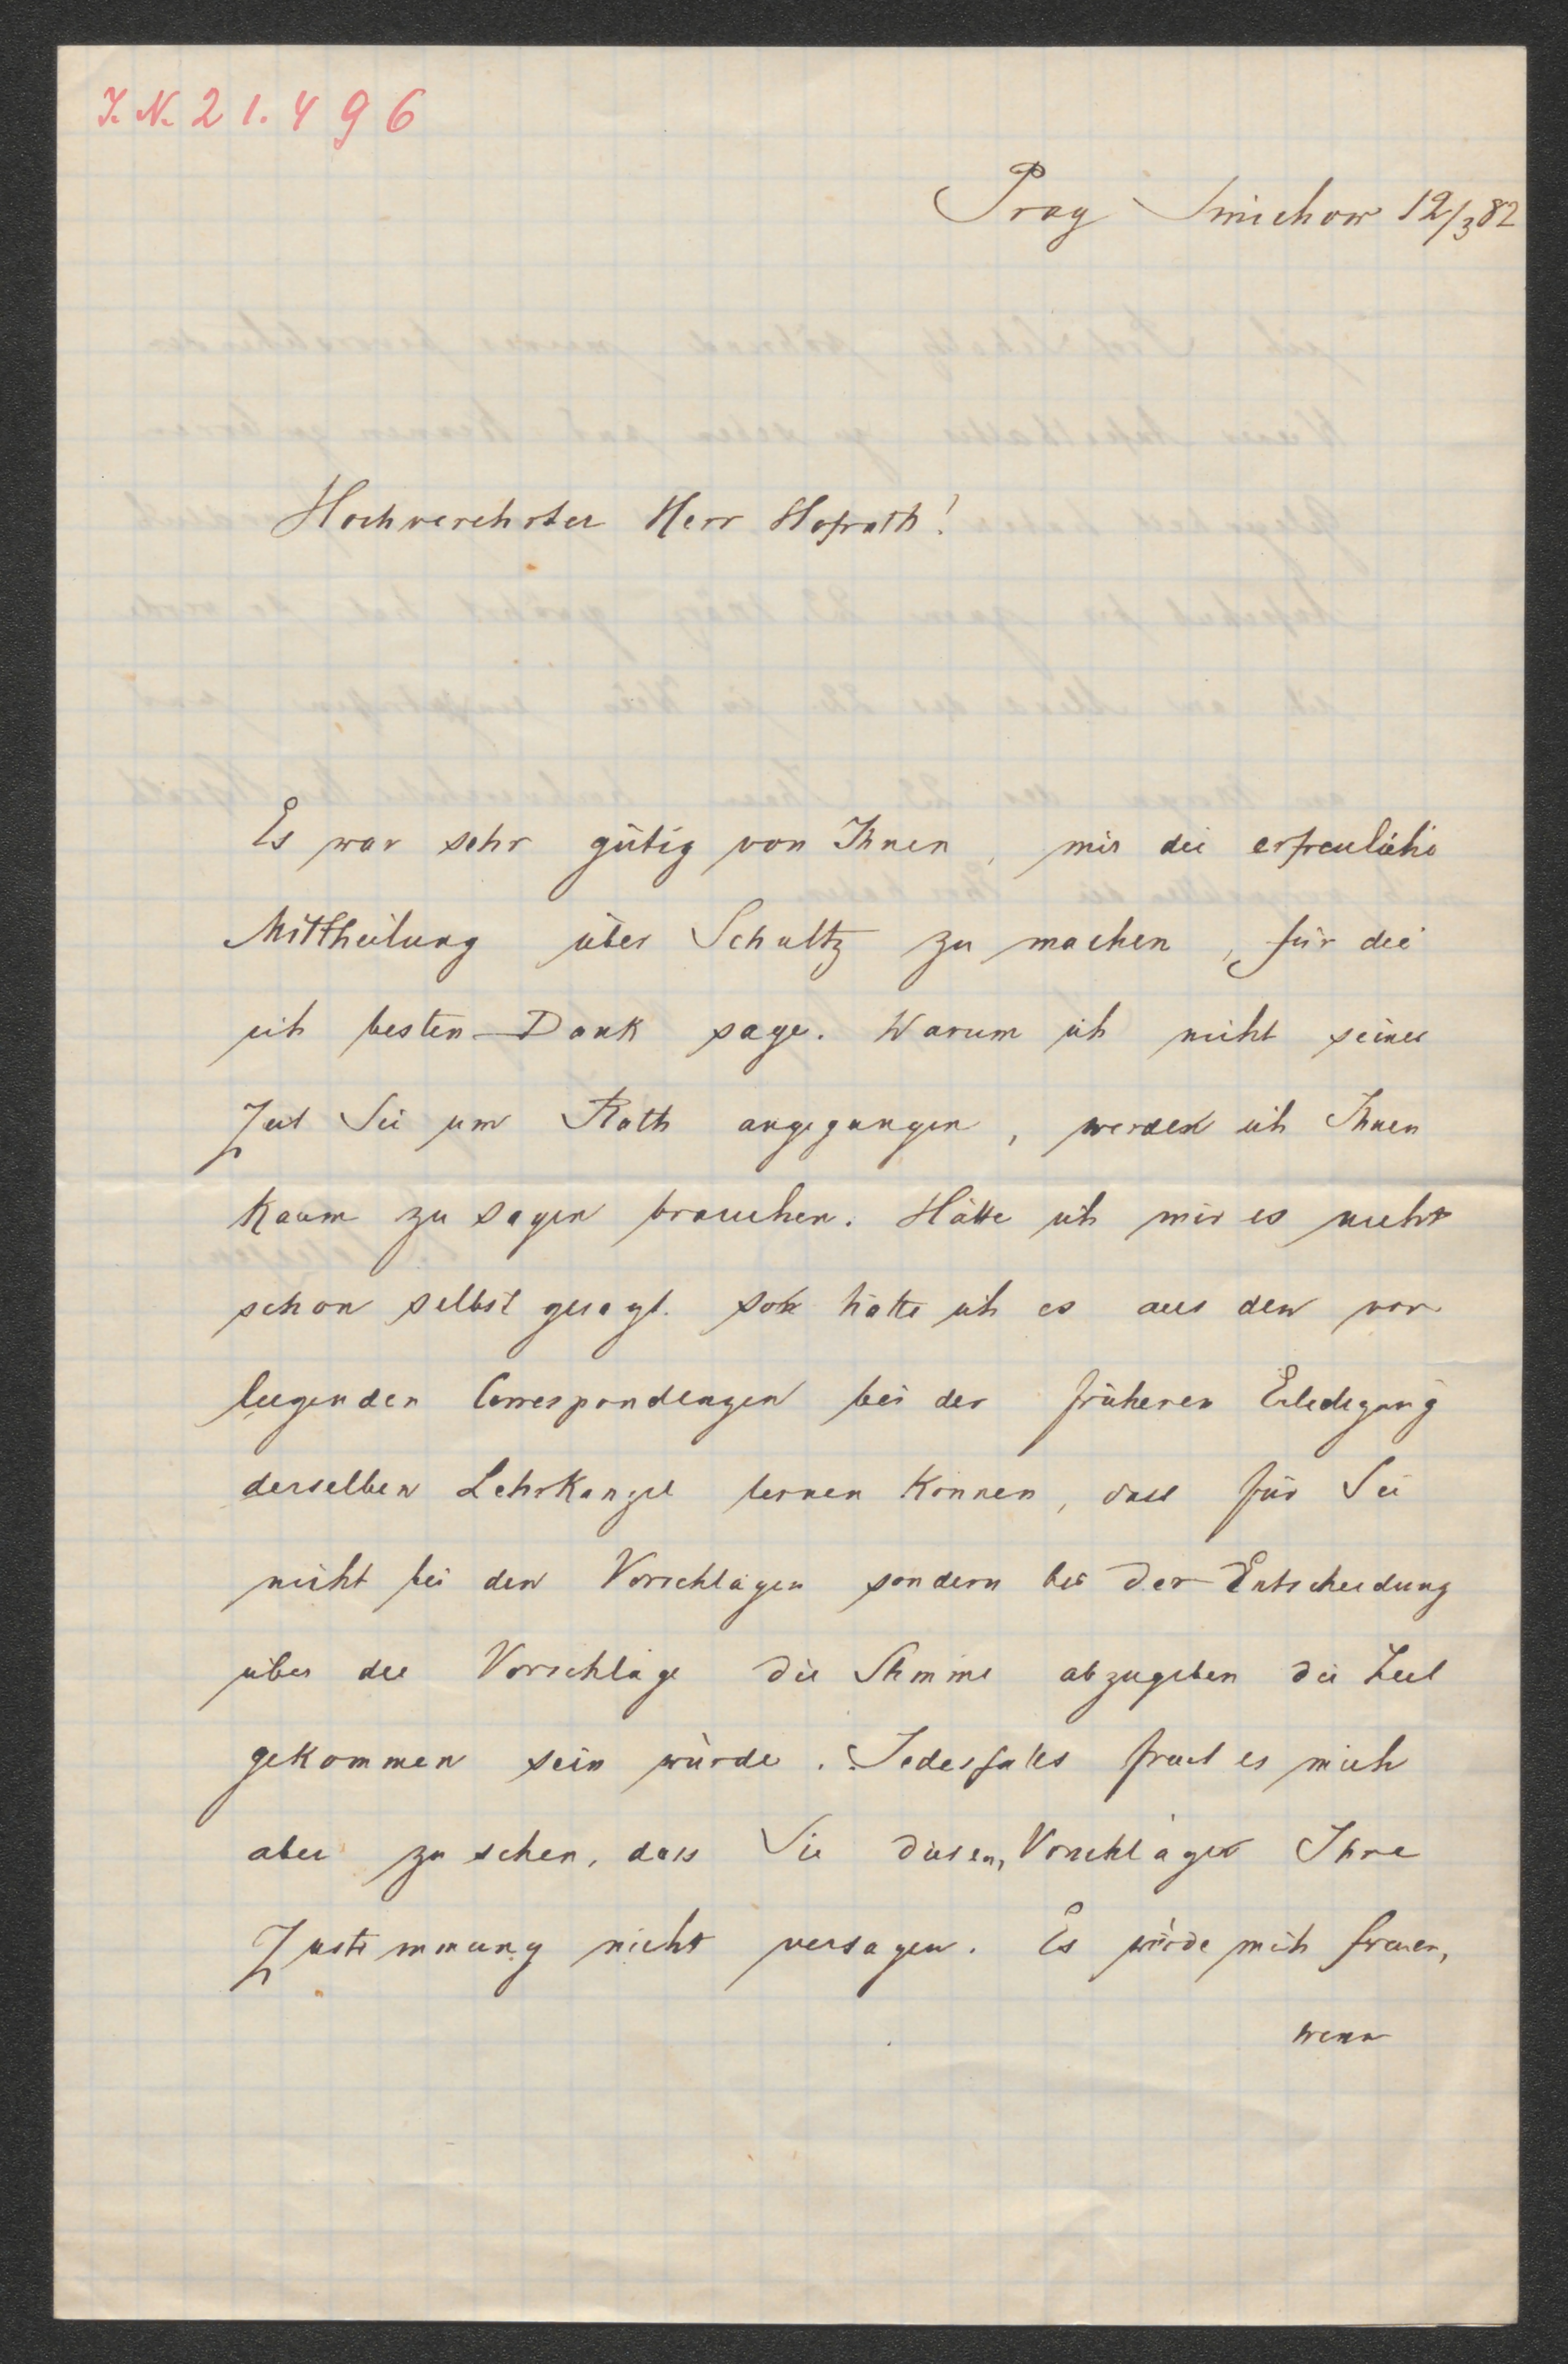 J. N. 21.496
Prag Smichow 12/3 82
Hochverehrter Herr Hofrath!
Es war sehr gütig von Ihnen, mir die erfreuliche
Mittheilung über Schultz zu machen, für die
ich besten Dank sage. Warum ich nicht seiner
Zeit Sie um Rath angegangen, werde ich Ihnen
kaum zu sagen brauchen. Hätte ich mir es nicht
schon selbst gesagt. so hätte ich es aus den vor
liegenden Correspondenzen bei der früheren Erledigung
derselben Lehrkanzel lernen können, dass für Sie
nicht bei den Vorschlägen sondern bei der Entscheidung
über die Vorschläge die Stimme abzugeben die Zeit
gekommen sein würde. Jedesfalls freut es mich
aber zu sehen, dass Sie diesen Vorschlägen Ihre
Zustimmung nicht versagen. Es würde mich freuen,
wenn